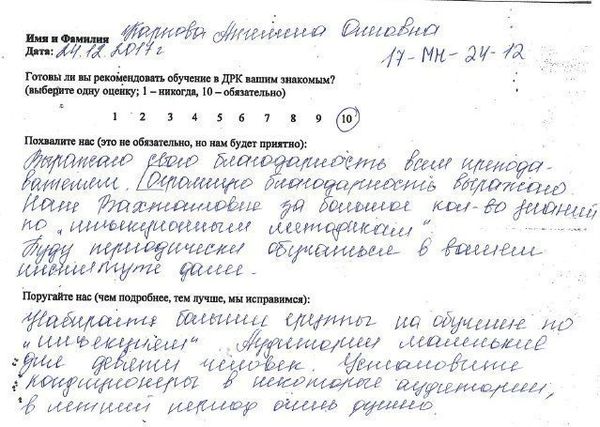 Имя и Фамилия Жаркова Ангелина Олеговна
Дата: 24.12.2017г 17-МН-24-12
Готовы ли вы рекомендовать обучение в ДРК вашим знакомым?
(выберите одну оценку; 1 – никогда, 10 – обязательно)
1 2 3 4 5 6 7 8 9 10
Похвалите нас (это не обязательно, но нам будет приятно):
Выражаю свою благодарность всем препода-
вателям. Огромную благодарность выражаю
Нане Вахтанговне за большое кол-во знаний
по „инъекционным методикам"
Буду периодически обучаться в вашем
институте далее.
Поругайте нас (чем подробнее, тем лучше, мы исправимся):
Набирайте большие группы на обучение по
„инъекциям". Аудитории маленькие
для девяти человек. Установите
кондиционеры в некоторые аудитории,
в летний период очень душно.